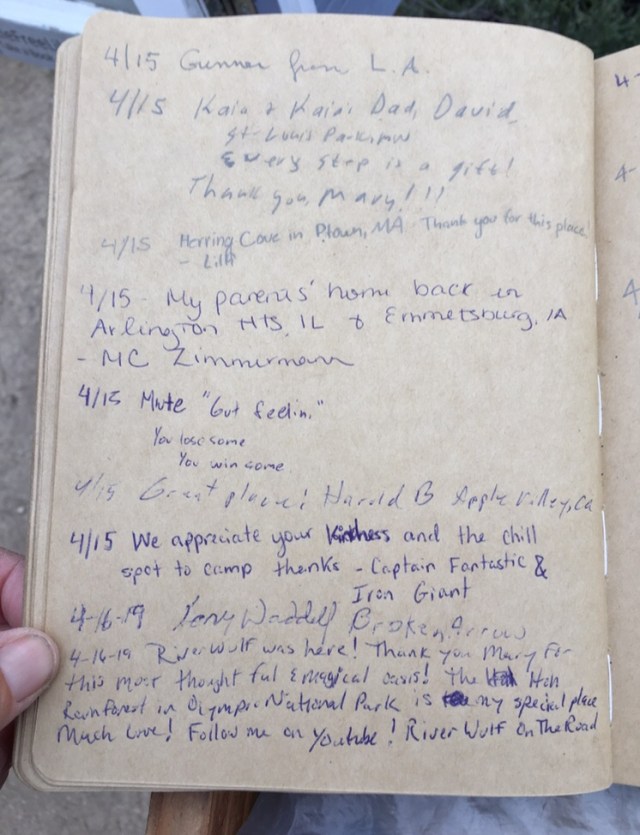 4/15 Gunner from L.A.
4/15 Kaia & Kaia's Dad, David
St. Louis Park, MN
Every step is a gift!
Thank you, Mary!!!
4/15 Herring Cove in Ptown, MA Thank you for this place!
- Lilli
4/15 - My parents' home back in
Arlington Hts, IL & Emmetsburg, IA
- MC Zimmermann
4/15 Mute "Gut feelin,"
You lose some
You win some
4/15 Great place! Harold B Apple Valley, Ca
4/15 We appreciate your kindness and the chill
spot to camp thanks - Captain Fantastic &
Iron Giant
4-16-19 Tony Waddell Broken Arrow
4-16-19 RiverWulf was here! Thank you Mary For
this most thoughtful & magical oasis! The Hoh
Rainforest in Olympic National Park is my special place
Much Love! Follow me on Youtube! River Wulf On The Road
4
4
4